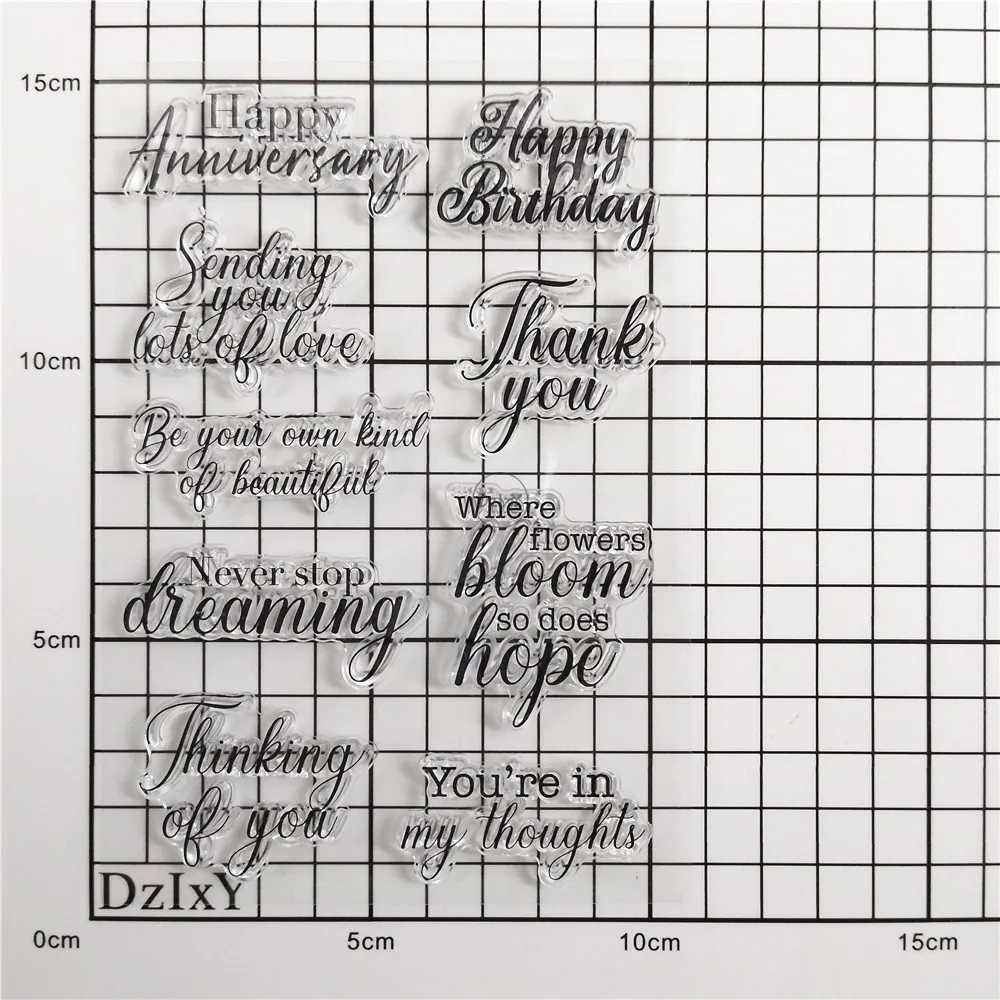 15cm
Happy
Anniversary
Happy
Birthday
Sending
you
lots of love
Thank
you
10cm
Be your own kind
of beautiful
Where
flowers
bloom
so does
hope
Never stop
dreaming
5cm
Thinking
of you
You're in
my thoughts
DzIxY
0cm
5cm
10cm
15cm